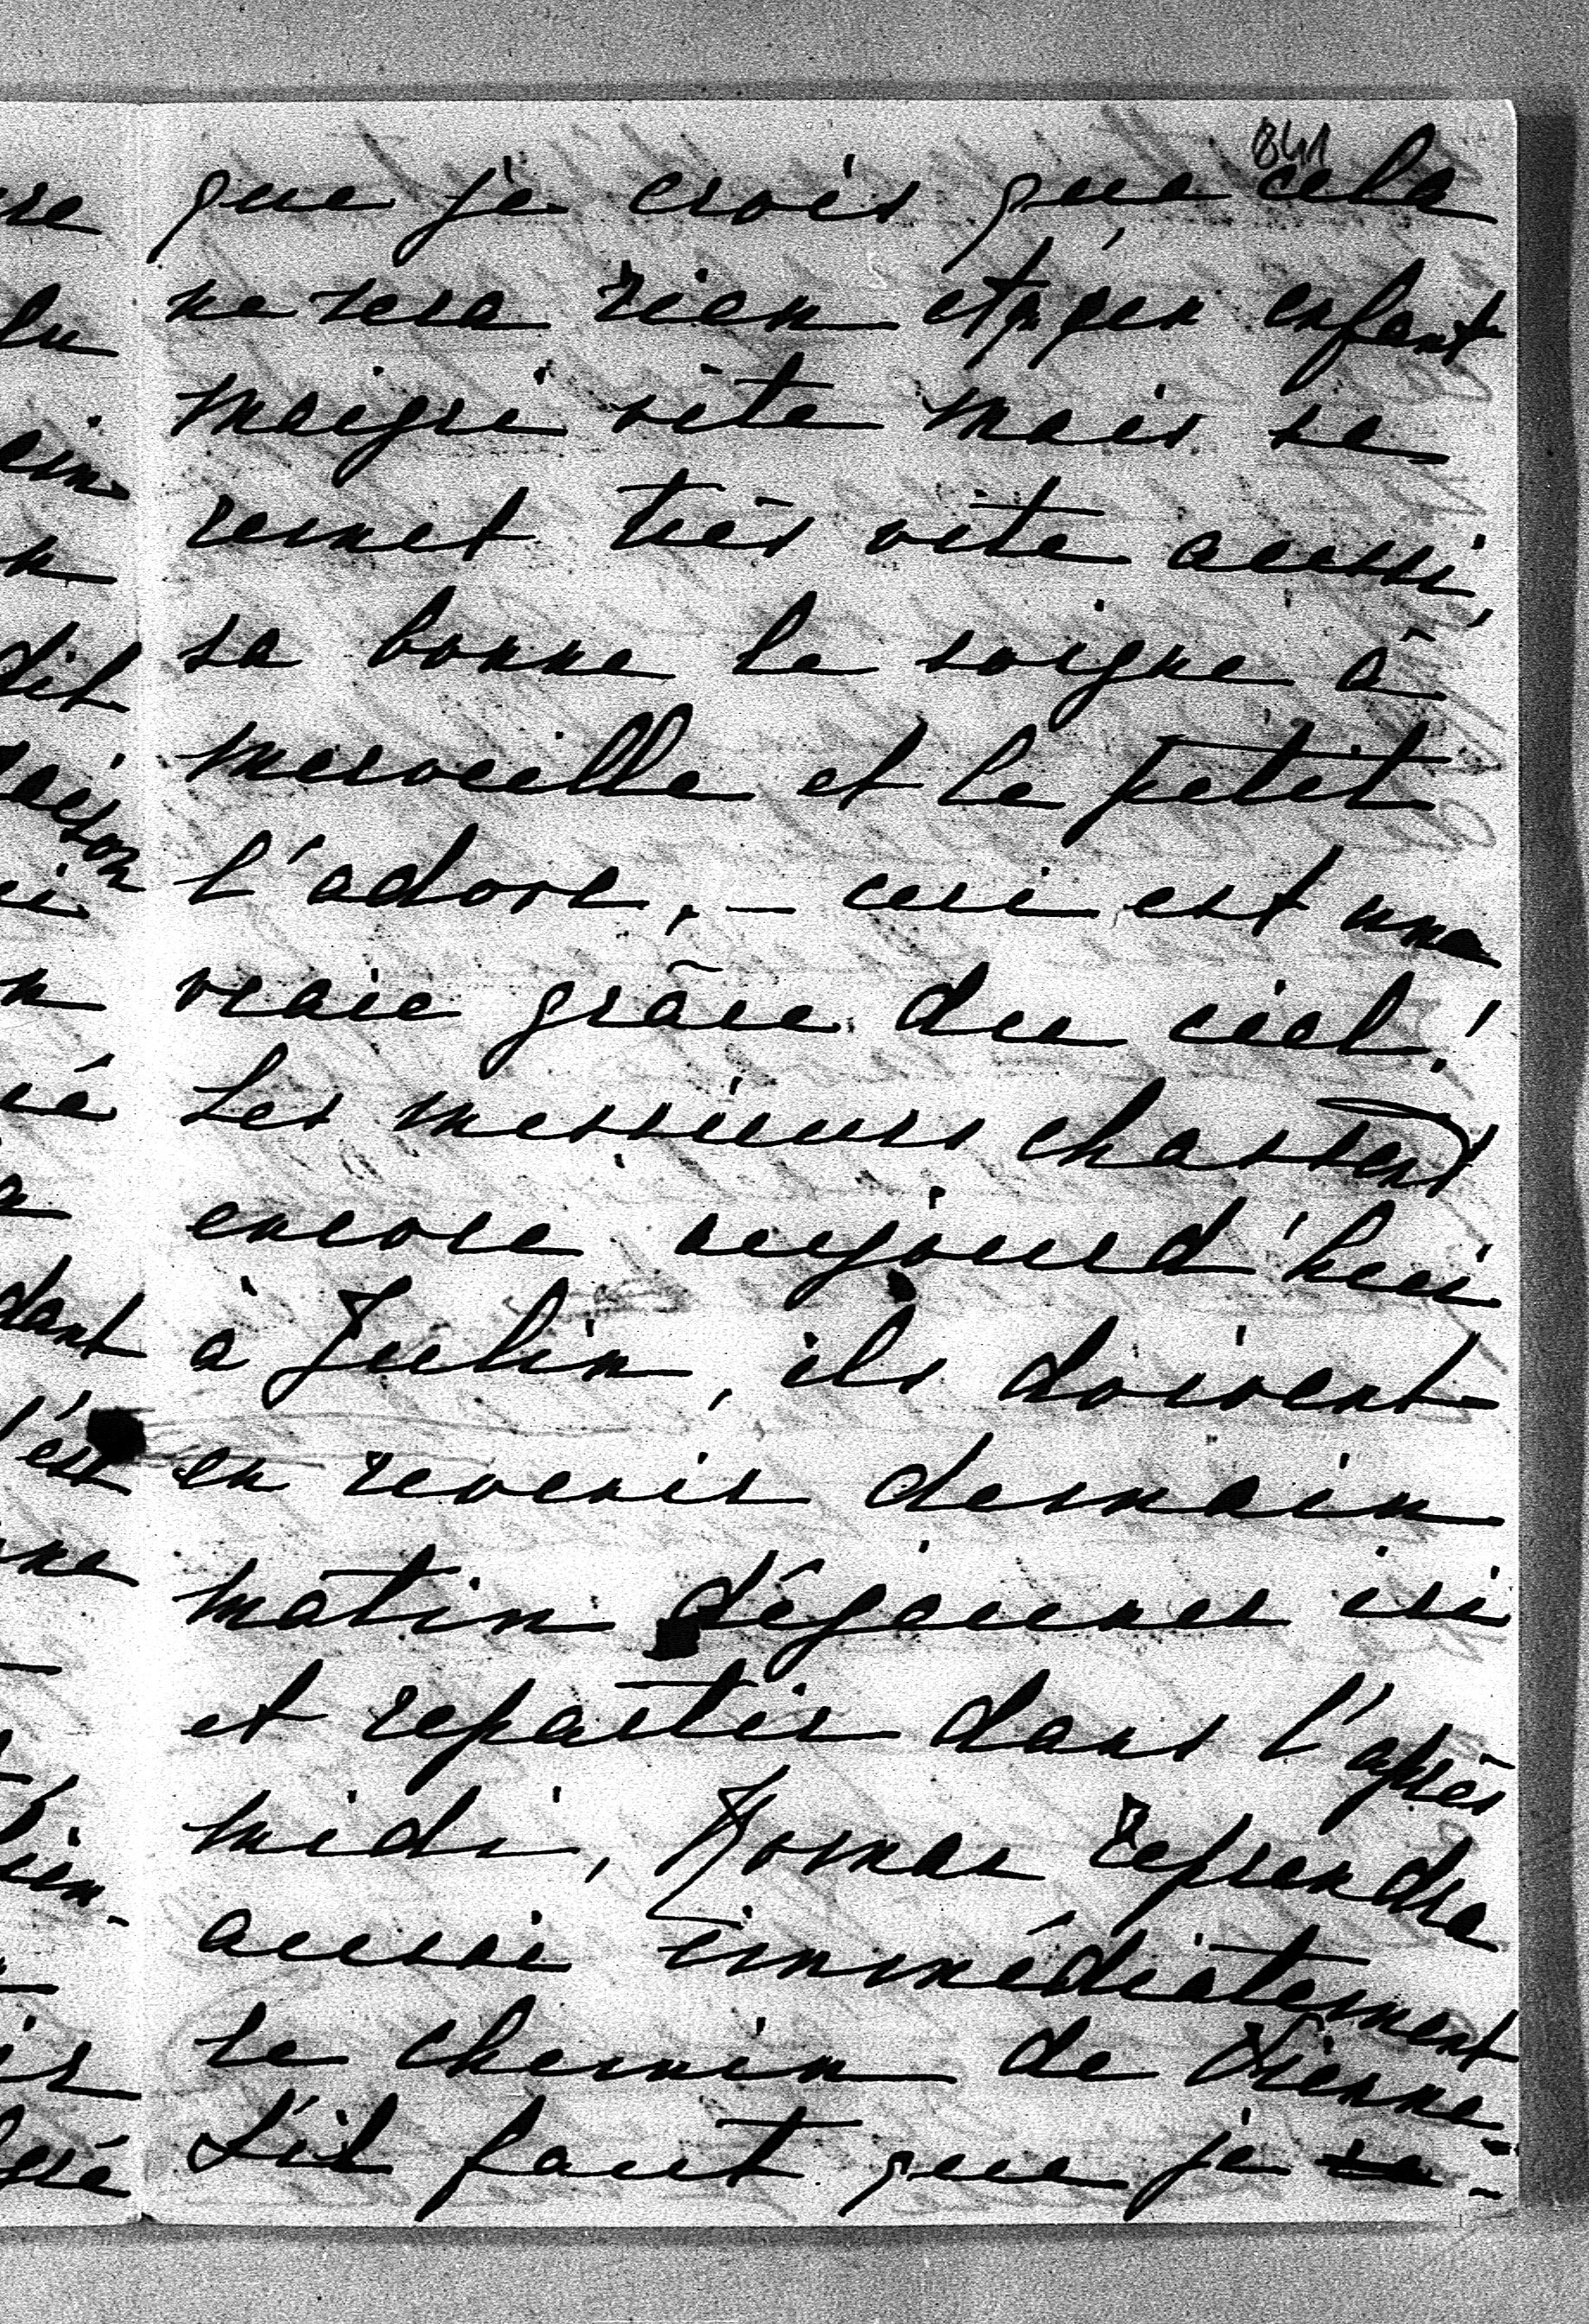 841
que je crois que cela
ne sera rien et qu'un enfant
maigri vite mais se
remet très vite aussi,
sa bonne le soigne à
merveille et le petit
l'adore, – ceci est une
vraie grâce du ciel!
Les messieurs chassent
encore aujourd'hui
à Julin, ils doivent
en revenir demain
matin déjeuner ici
et repartir dans l'après
midi, Thomas reprendra
aussi immédiatement
le chemin de Vienne.
S'il faut que je